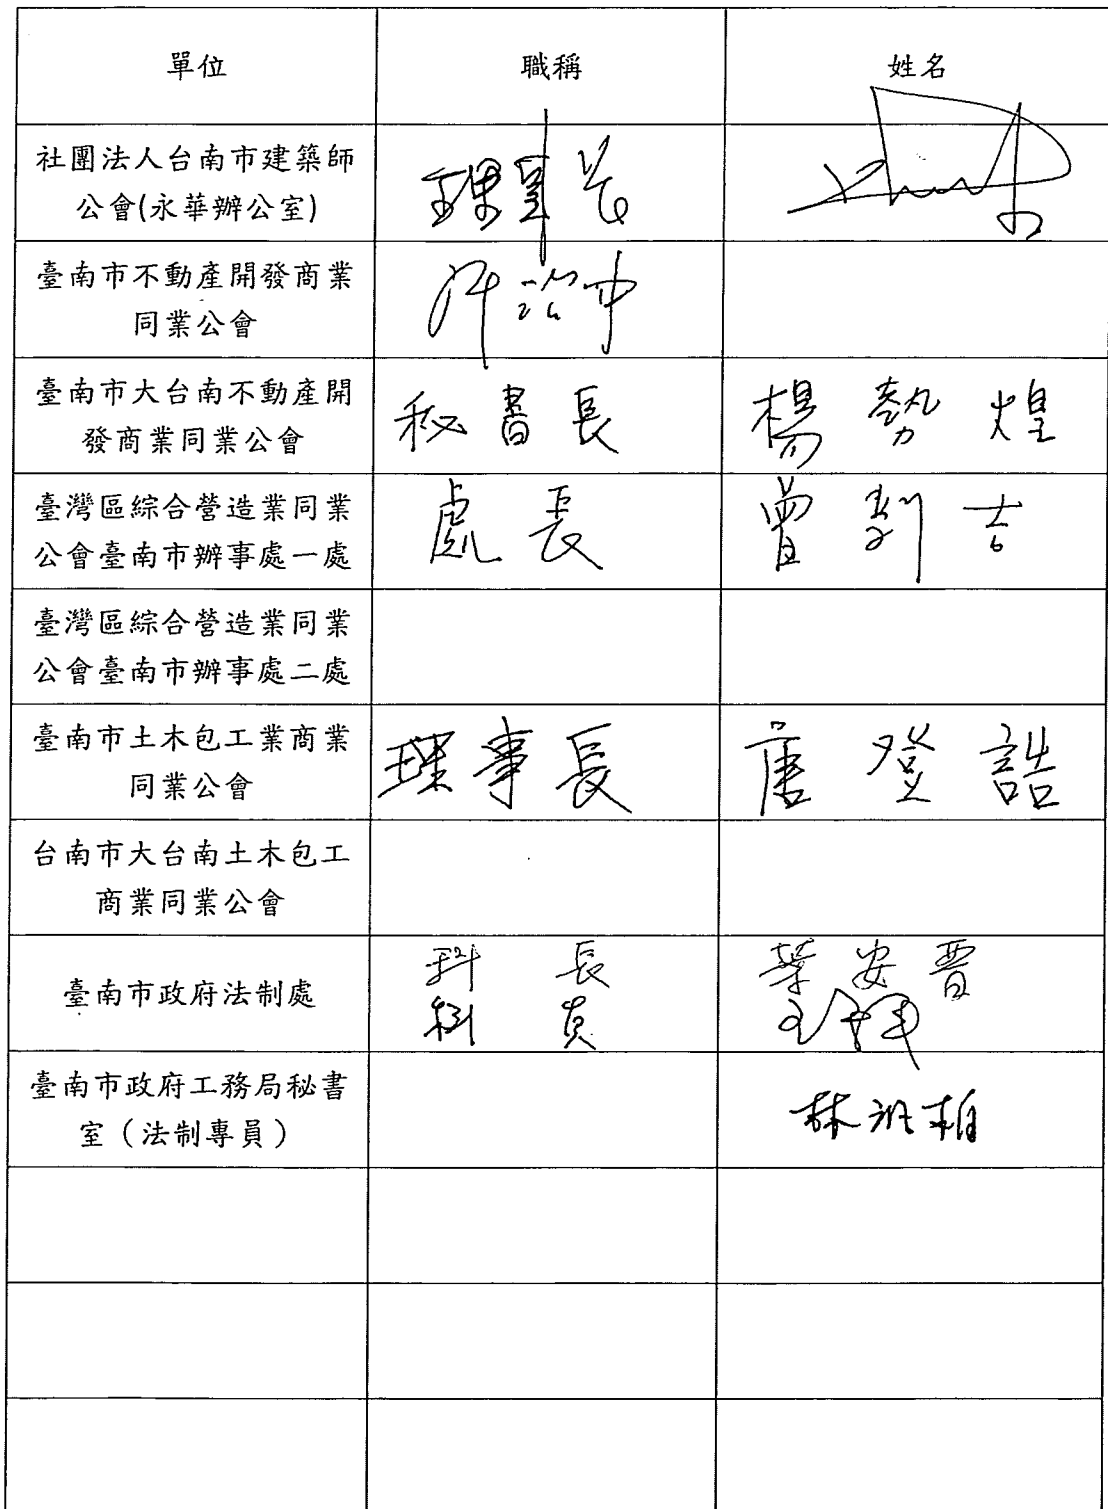 單位 職稱 姓名
社團法人台南市建築師
公會(永華辦公室)
理事長
臺南市不動產開發商業
同業公會
臺南市大台南不動產開
發商業同業公會
秘書長 楊勢煌
臺灣區綜合營造業同業
公會臺南市辦事處一處
處長 曾 吉
臺灣區綜合營造業同業
公會臺南市辦事處二處
臺南市土木包工業商業
同業公會
理事長 唐登誥
台南市大台南土木包工
商業同業公會
臺南市政府法制處
科長 葉安晉
科員
臺南市政府工務局秘書
室（法制專員）
林 柏